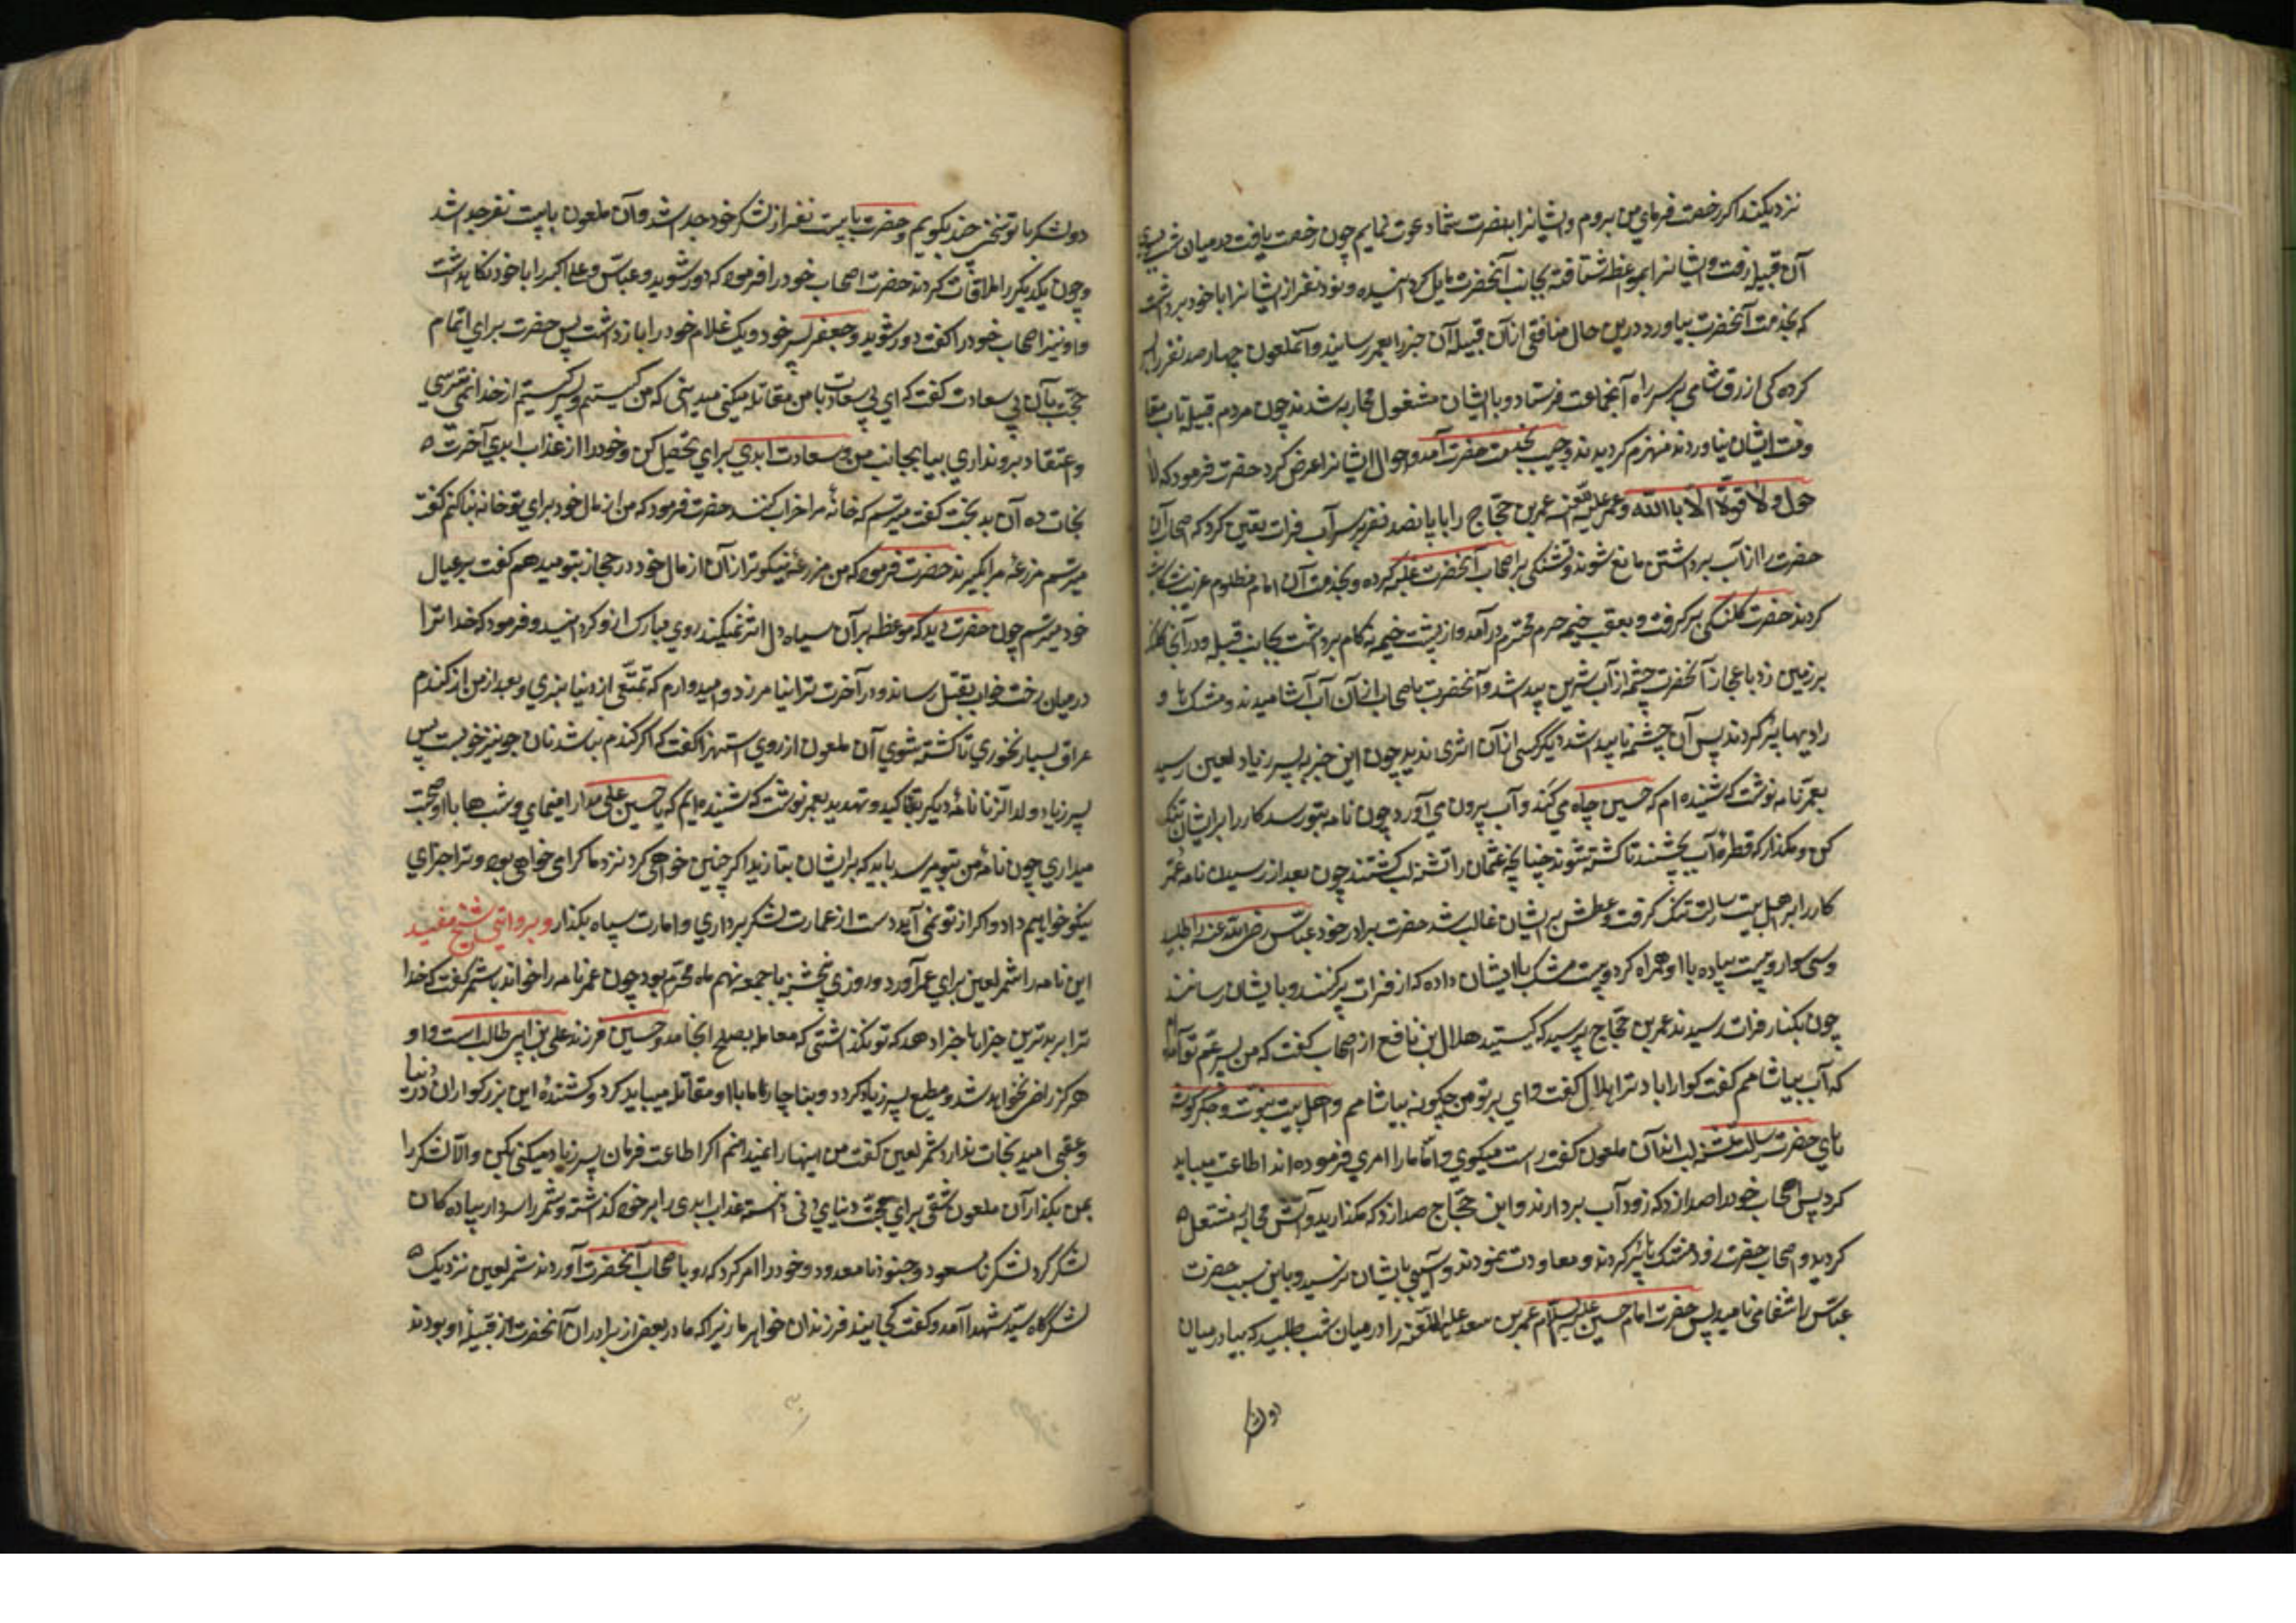 نزدیکند اکر رخصت فرمای من بروم و ایشانرا بنصرت شما دعوت نمایم چون رخصت یافت در میان شب بسوی
آن قبیله رفت و ایشانرا بموعظه شتافته بجانب آنحضرت مایل کردانیده و نود نفر از ایشانرا با خود برداشت
که بخدمت آنحضرت بیاورد درین حال منافقی از آن قبیله آن خبر را بعمر رسانید و آنملعون چهار صد نفر را
کرده کی ازرق شامی بر سر راه آنجماعت فرستاد و با ایشان مشغول محاربه شدند چون مردم قبیله تاب مقا
ومت ایشان نیاوردند منهزم کردیدند و حبیب بخدمت حضرت آمد و احوال ایشانرا عرض کرد حضرت فرمود که لا
حول ولا قوة الا باالله و عمر علیه اللعنه عمر بن حجاج را با پانصد نفر بر سر آب فرات تعین کرد که اصحاب آن
حضرت را از آب برداشتن مانع شوند و تشنکی بر اصحاب آنحضرت غلبه کرده و بخدمت آن امام مظلوم غریب شکایت
کردند حضرت کلنکی بر کرفت و بعقب خیمه حرم محترم در آمد و از پشت خیمه نه کام برداشت بجانب قبله و در آنجا کلنک
بر زمین زد با عجاز آنحضرت چشمه از آب شرین پیدا شد و آنحضرت با اصحاب از آن آب آشامیدند و مشک ها و
راویها پر کردند پس آن چشمه ناپیدا شد دیکر کسی از آن اثری ندید چون این خبر به پسر زیاد لعین رسید
بعمر نامه نوشت که شنیده ام که حسین چاه می کند و آب برون می آورد چون نامه بتو رسد کار را بر ایشان تنک
کن و مکذار که قطرهٔ آب بچشند تا کشته شوند چنانچه عثمان را تشنه لب کشتند چون بعد از رسیدن نامه عمر
کار را بر اهل بیت رسالت تنک کرفت و عطش بر ایشان غالب شد حضرت برادر خود عباس رضی الله عنه را طلبید
و سی سوار و بیست پیاده با او همراه کرد و بیست مشک با ایشان داده که از فرات پر کنند و با یشان رسانند
چون بکنار فرات رسیدند عمر بن حجاج پرسید که کیستید هلال ابن نافع از اصحاب کفت که من پسر عم تو آمده ام
که آب بیاشامم کفت کوارا باد ترا هلال کفت وای بر تو من چکونه بیاشامم و اهل بیت نبوت و جکر کوشه
های حضرت رسالت تشنه لب اند آن ملعون کفت راست میکوی و امّا ما را امری فرموده اند اطاعت میباید
کرد پس اصحاب خود را صدا زد که زود آب بردارند و ابن حجاج صدا زد که مکذارید و آتش محاربه مشتعل
کردید و اصحاب حضرت زود مشک ها پر کردند و معاودت نمودند و آسیبی با یشان نرسید و باین سبب حضرت
عباس را سقا می نامید پس حضرت امام حسین علیه السلام عمر بن سعد علیه اللعنه را در میان شب طلبید که بیا در میان
دو لشکر
دو لشکر تا با تو سخن چند بکویم و حضرت با بیست نفر از لشکر خود جدا شد و آن ملعون با بیست نفر جدا شد
و چون یکدیکر را ملاقات کردند حضرت اصحاب خود را فرمود که دور شوید و عباس و علی اکبر را با خود نکاهداشت
و او نیز اصحاب خود را کفت دور شوید و جعفر پسر خود و یک غلام خود را بازداشت پس حضرت برای اتمام
حجت بآن بی سعادت کفت که ای بی سعادت با من مقاتله میکنی میدانی که من کیستم و پسر کیستم از خدا نمی ترسی
و اعتقاد بروز نداری بیا بجانب من و سعادت ابدی برای تحصیل کن و خود را از عذاب ابدی آخرت
نجات ده آن بدبخت کفت میترسم که خانهٔ مرا خراب کنند حضرت فرمود که من از مال خود برای تو خانه بنا کنم کفت
میترسم مزرعه مرا بگیرند حضرت فرمود که من مزرعهٔ نیکوتر از آن از مال خود در حجاز بتو میدهم کفت بر عیال
خود میترسم چون حضرت دید که موعظه بر آن سیاه دل اثر نمیکند روی مبارک از او کردانید و فرمود که خدا ترا
در میان رخت خواب بقتل رساند و در آخرت ترا نیامرزد و امیدوارم که تمتعی از دنیا نبری و بعد از من از کندم
عراق بسیار نخوری تا کشته شوی آن ملعون از روی استهزا کفت که اکر کندم نباشد نان جو نیز خوبست پس
پسر زیاد ولد الزنا نامهٔ دیکر بتاکید و تهدید بعمر نوشت که شنیده ایم که با حسین علی مدارا مینمای و شب ها با او صحبت
میداری چون نامهٔ من بتو برسد باید که بر ایشان بتازید اکر چنین خواهی کرد نزد ما کرامی خواهی بود و ترا جزای
نیکو خواهیم داد و اکر از تو نمی آید دست از عمارت لشکر برداری و امارت سپاه بکذار و بروایتی شیخ مفید
این نامه را شمر لعین برای عمر آورد و روزی پنجشنبه یا جمعه نهم ماه محرم بود چون عمر نامه را خواند بشمر کفت که خدا
ترا بر بدترین جزا ها جزا دهد که تو نکذاشتی که معامله بصلح انجامد و حسین فرزند علی بن ابی طالب است و او
هرکز راضی نخواهد شد و مطیع پسر زیاد کردد و بناچار ما ما با او مقاتله میباید کرد و کشندهٔ این بزرکواران در دنیا
و عقبی امید نجات ندارد شمر لعین کفت من اینها را نمیدانم اکر اطاعت فرمان پسر زیاد میکنی بکن و الّا لشکر را
بمن بکذار آن ملعون شقی برای محبت دنیای دنی دانسته عذاب ابدی را بر خود کذاشته و شمر را سردار پیاده کان
لشکر کرد لشکر نا مسعود و جنود نا معدود خود را امر کرد که رو با صحاب آنحضرت آوردند شمر لعین نزدیک
لشرکاه سید شهدا آمد و کفت کجایند فرزندان خواهر ما زیرا که مادر بعضی از برادران آنحضرت از قبیله او بودند